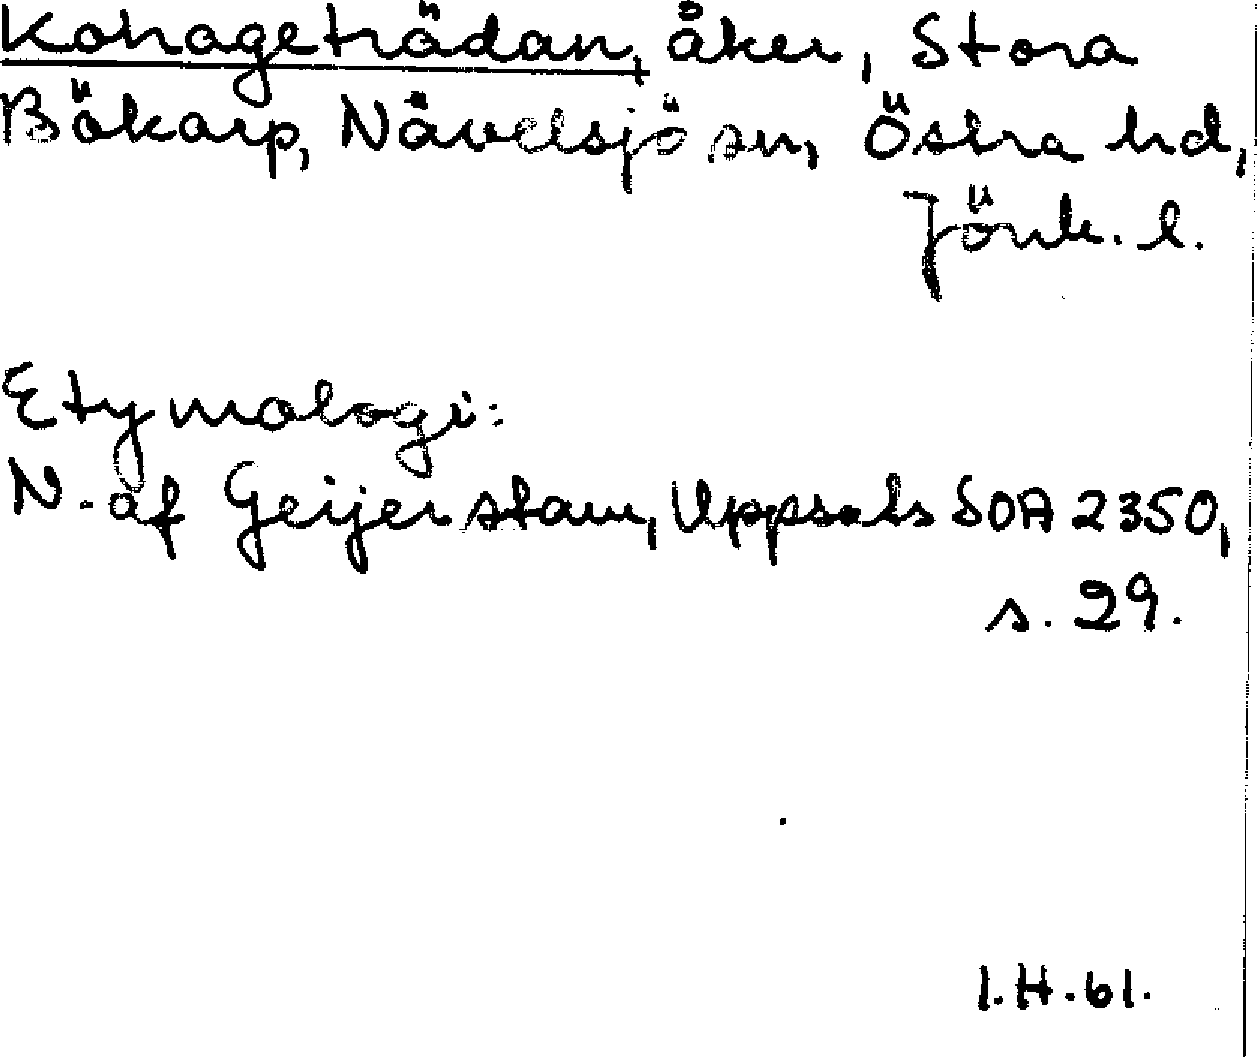 Kohageträdan, åker, Stora
Bökarp, Nävelsjö sn, Östra hd,
Jönk. l.
Etymologi:
N. af Geijerstam, Uppsats SOA 2350,
s. 29.
I.H. 61.